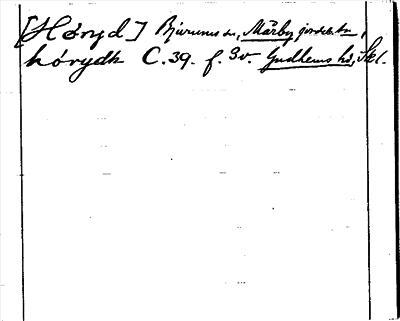 [Höryd] Bjurums sn, Mårby jordebokn,
hórydh C. 39. f. 3v. Gudhems hd, Skl.